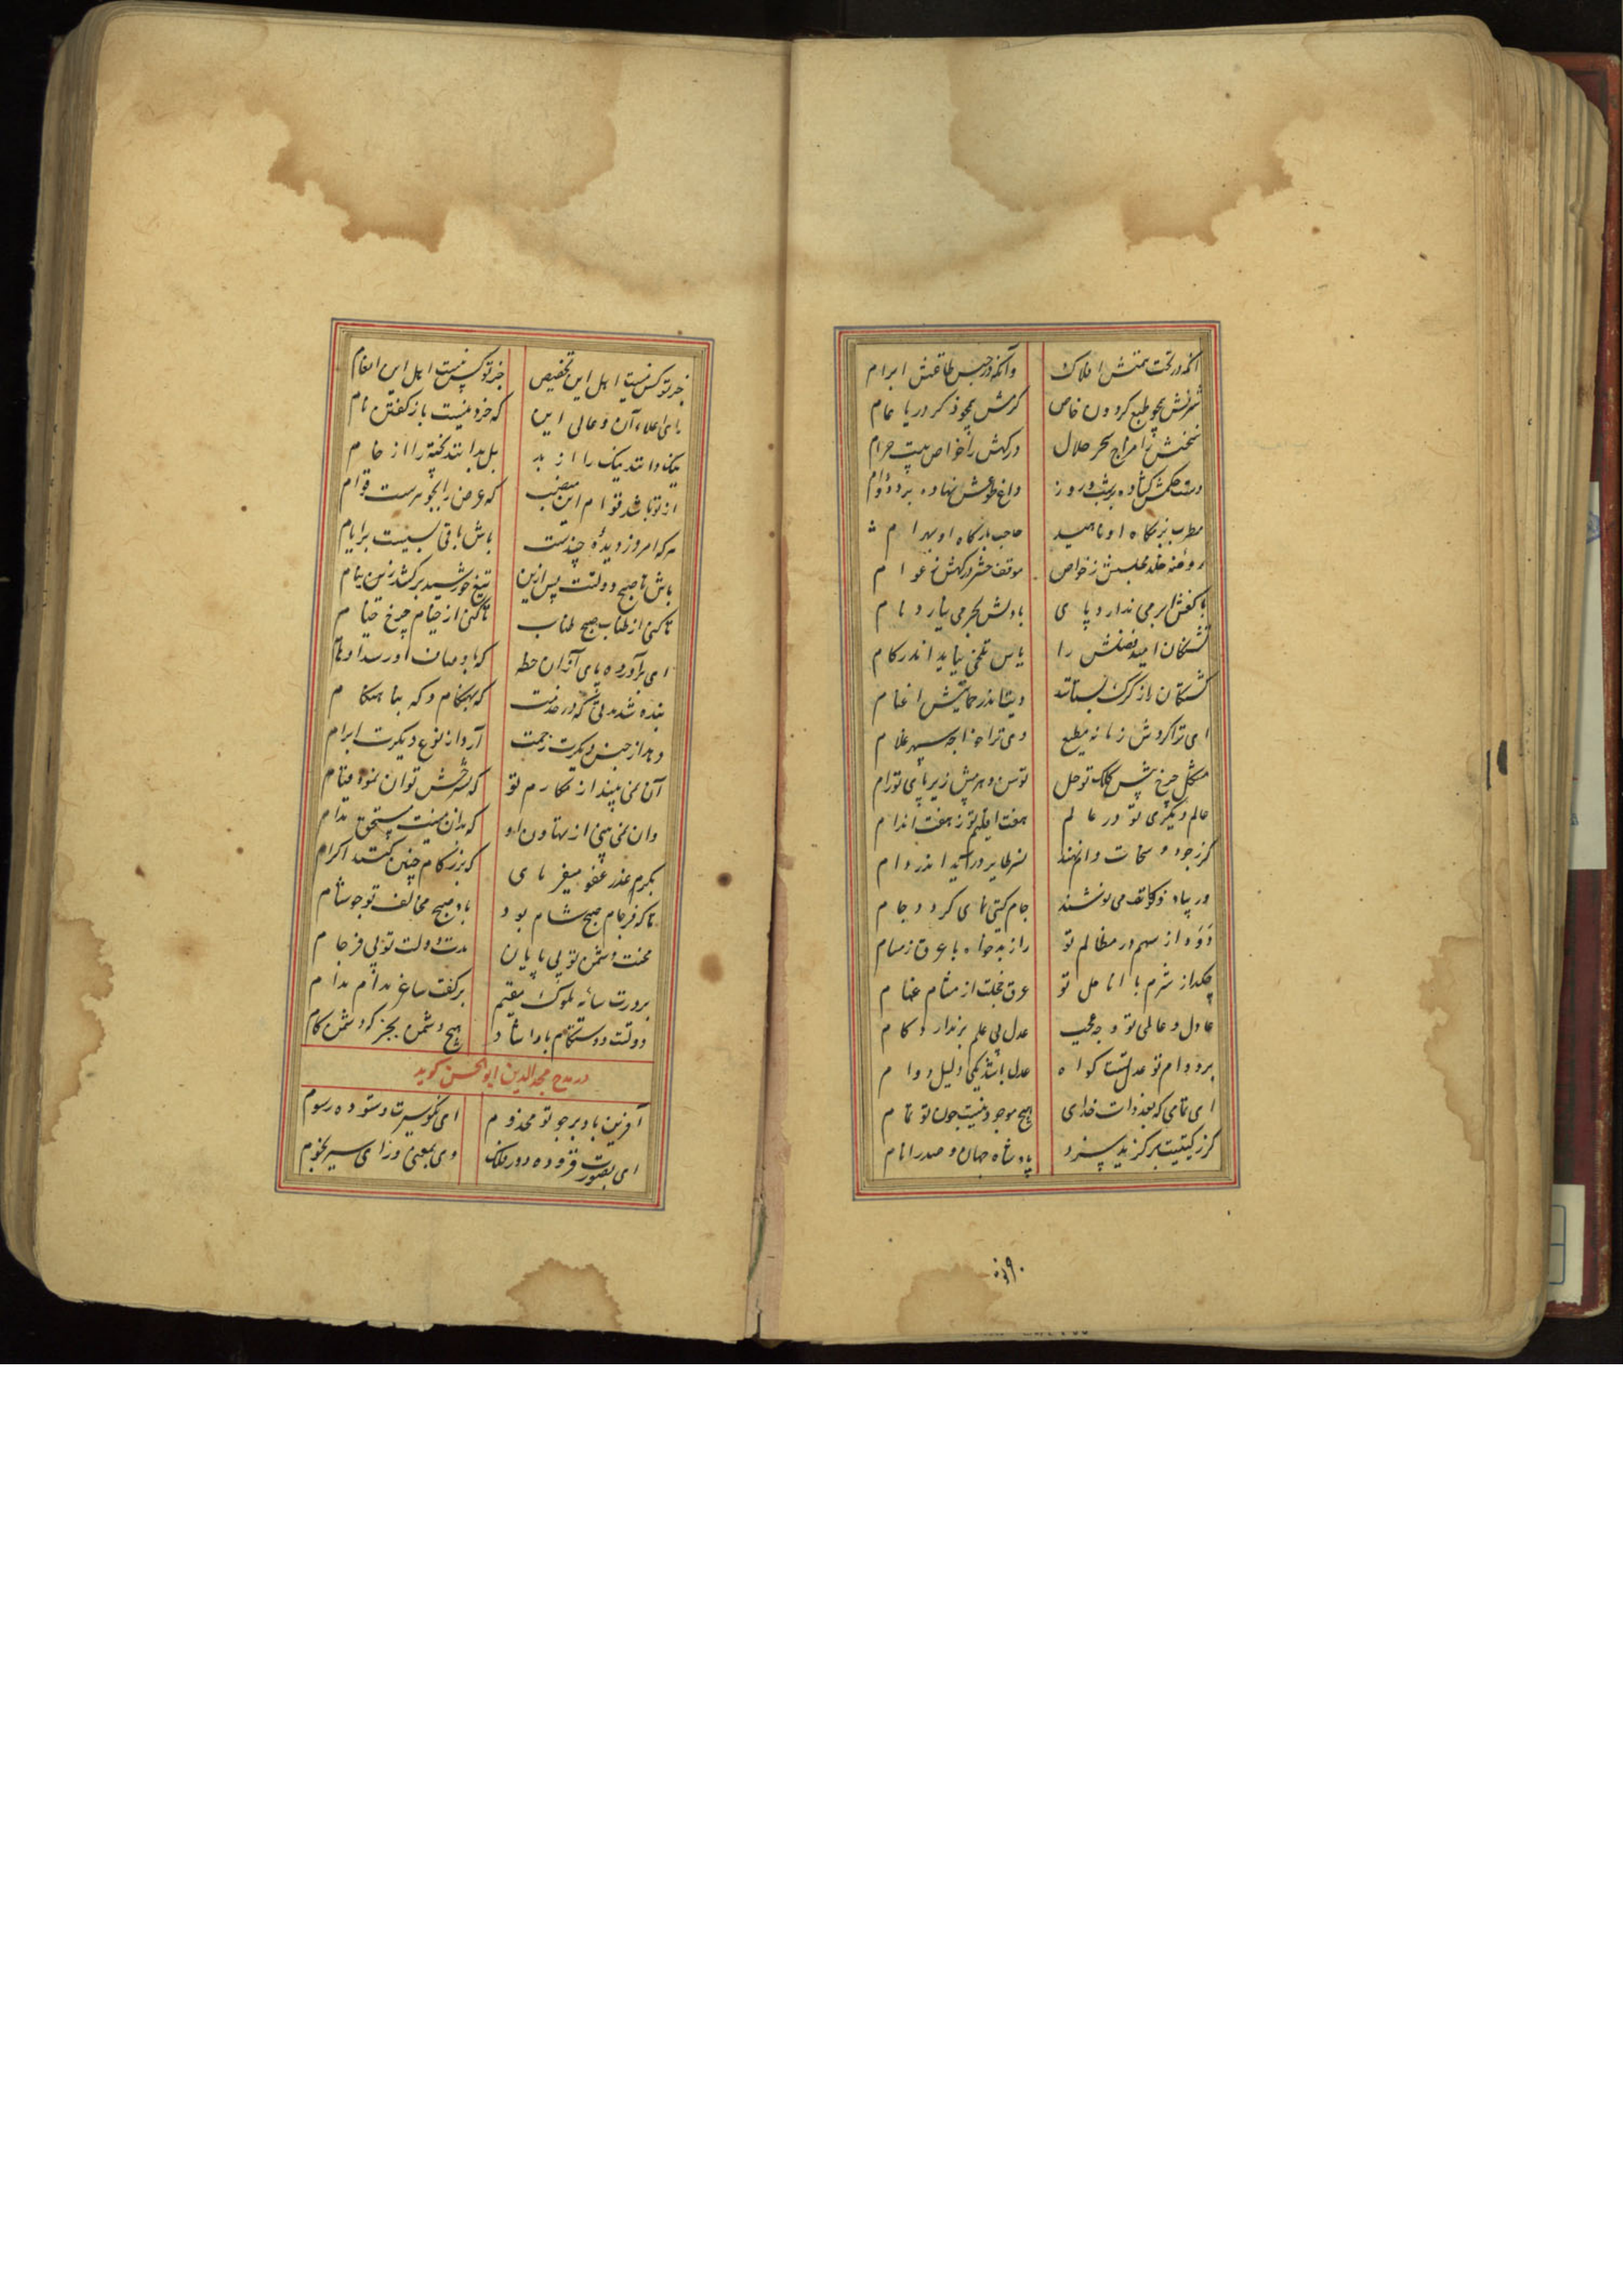 آنکه در تحت همتش افلاک وآنکه در جنب طاعتش اجرام
شرفش همچو طبع گردون خاص کرمش همچو ذکر دریا عام
سخنش را مزاج سحر حلال درگهش را خواص بیت حرام
دست حکمش گشاده بر شب و روز داغ طوعش نهاده بر دد و دام
مطرب بزمگاه او ناهید حاجب بارگاه او بهرام
روضه خلد مجلسش ز خواص موقف حشر درگهش ز عوام
با کفش ابر می ندارد پای با دلش بحر می نیارد نام
تشنگان امید فضلش را یاس تلخی نیابد اندر کام
کشتگان باز گرگ بستاند اندر حمایتش اغنام
ای ترا گردش زمانه مطیع وی ترا خواجه سپهر غلام
مشکل چرخ پیش کلک تو حل توسن دهر پیش زیر پای تو رام
عالم دیگری تو در عالم هفت اقلیم تو ز هفت اندام
گر ز جود و سخات دام نهند نسر طایر درآید اندر دام
ور بیاد ذکات می نوشند جام گیتی نمای گردد جام
دود از سهم در مظالم تو راز بدخواه با عرق ز مسام
چکد از شرم با انامل تو عرق خجلت از مشام غمام
عادل و عالمی تو وچه عجب عدل بی علم بر ندارد کام
بر دوام تو عدل تست گواه عدل باشد یکی دلیل دوام
ای تمامی که بعد ذات خدای هیچ موجود نیست چون تو تمام
گر ز گیتیت برگزید سزد پادشاه جهان و صدر انام
جز تو
جز تو کس نیست اهل این تخصیص جز تو کس نیست اهل این انعام
که خرد نیست باز گفتن نام
نیک دانند نیک را از بد بل بدانند پخته را از خام
از تو باشد قوام این منصب که عرض را بجوهرست قوام
هر که امروز دیده چندست باش باقی بسیست بر ایام
باش تا صبح دولتت پس ازین تیغ خورشید برکشد ز نیام
تا کنی از طناب صبح طناب تا کنی از خیام چرخ خیام
ای برآورده پای از آن خطه که
بنده شد مدتی که در خدمت که بهنگام و که بنا هنگام
دهد از جنس دیگرت زحمت آرد از نوع دیگرت ابرام
آن نمی بیند از مکارم تو که بشرحش توان نمود قیام
وان نمی بینی از تهاون او که بدان نیست مستحق ملام
بکرم عذر عفو میفرمای که بزرگام چنین کنند اکرام
تا که فرجام صبح شام بود باد صبح مخالف تو چو شام
محنت دشمن تو بی پایان مدت دولت تو بی فرجام
بر درت سائه ملوک مقیم بر کفت ساغر مدام مدام
دولتت دوستکام بادا شاد هیچ دشمن بجز که دشمن کام
در مدح مجدالدین ابوالحسن گوید
آفرین باد بر چو تو مخدوم ای نکو سیرت و ستوده رسوم
ای بصورت فزوده دور فلک وی بمعنی ورای سیر نجوم